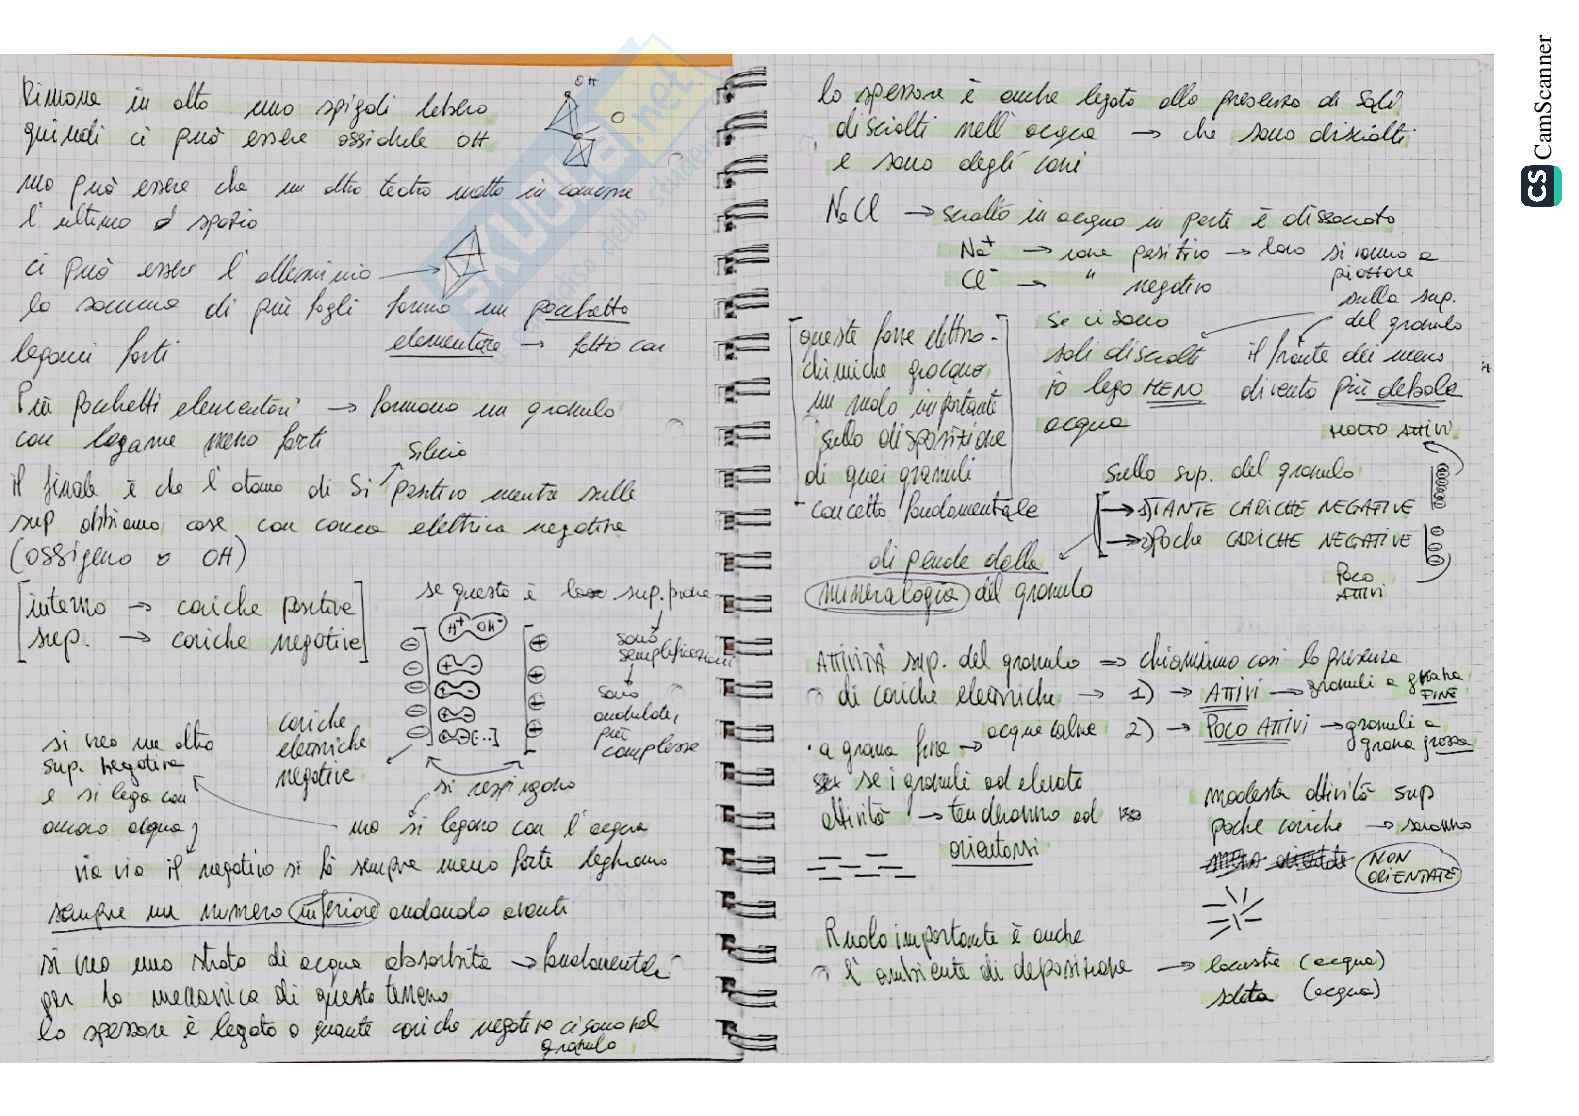 Rimane in alto uno spigoli libero
quindi ci può essere ossidule OH
OH
O
ma può essere che un altro tectro metto in comune
l'ultimo spazio
ci può essere l'alluminio →
la somma di più fogli forma un pacchetto
elementare → fatto con
legami forti
Più pacchetti elementari → formano un granulo
con legame meno forti
silicio
il finale è che l'atomo di Si positivo mentre sulle
sup abbiamo cose con carica elettrica negativa
(ossigeno o OH)
interno → cariche positive
sup. → cariche negative
se questa è la sup. piana
sono semplificazioni
sono ondulate, più complesse
H+ OH-
cariche
elettriche
negative
si respingono
si crea un altra
sup. negativa
e si lega con
ancora acqua
ma si legano con l'acqua
via via il negativo si fa sempre meno forte leghiamo
sempre un numero inferiore andando avanti
si crea uno strato di acqua absorbita → fondamentale
per la meccanica di questo terreno
lo spessore è legato a quante cariche negative ci sono nel
granulo
lo spessore è anche legato alla presenza di Sali
disciolti nell'acqua → che sono disciolti
e sono degli ioni
NaCl → sciolto in acqua in parte è dissociato
Na+ → ione positivo → loro si vanno a
Cl- → " negativo
piazzare
sulla sup.
del granulo
queste forze elettro-
chimiche giocano
un ruolo importante
sulla disposizione
di quei granuli
concetto fondamentale
Se ci sono
sali disciolti
io lego MENO
acqua
il fronte dei meno
diventa più debole
MOLTO ATTIVI
Sulla sup. del granulo
→ 1) TANTE CARICHE NEGATIVE
→ 2) Poche CARICHE NEGATIVE
POCO
ATTIVI
dipende dalla
mineralogia del granulo
ATTIVITÀ sup. del granulo ⇒ chiamiamo così la presenza
di cariche elettriche → 1) → ATTIVI → granuli a grana
FINE
2) → POCO ATTIVI → granuli a
grana grossa
• a grana fine →
se i granuli ad elevata
attività → tenderanno ad
orientarsi
modesta attività sup
poche cariche → saranno
NON
ORIENTATE
Ruolo importante è anche
l'ambiente di deposizione → lacustre (acqua)
salata (acqua)
SKUOLA.net
CS CamScanner